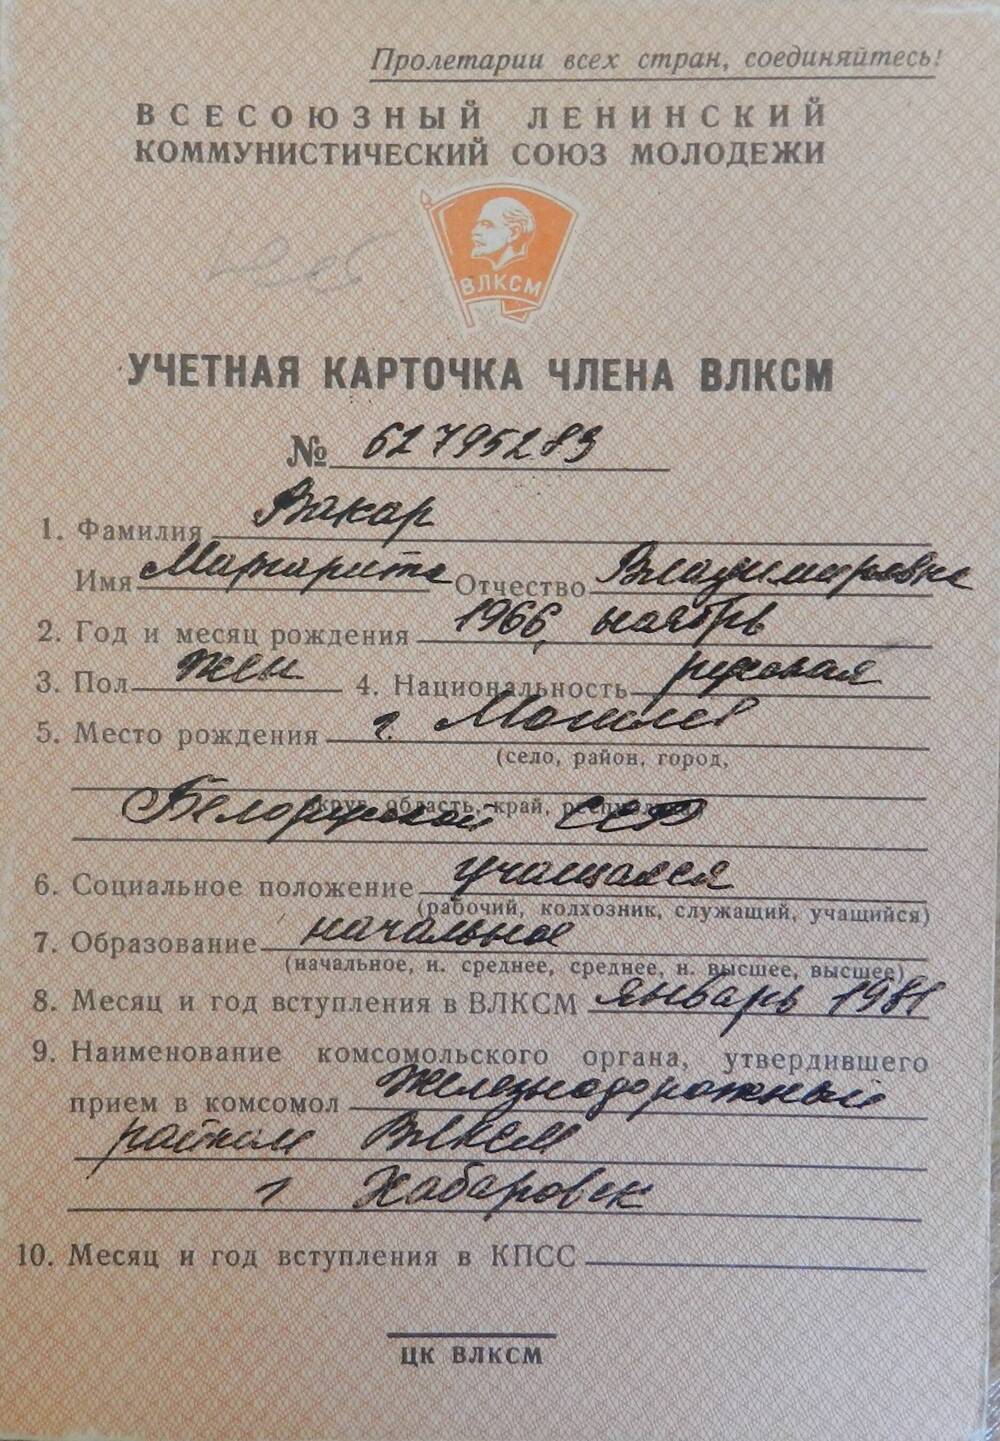 Пролетарии всех стран, соединяйтесь!
ВСЕСОЮЗНЫЙ ЛЕНИНСКИЙ
КОММУНИСТИЧЕСКИЙ СОЮЗ МОЛОДЕЖИ
ВЛКСМ
УЧЕТНАЯ КАРТОЧКА ЧЛЕНА ВЛКСМ
№ 62795283
1. Фамилия Вакар
Имя Маргарита Отчество Владимировна
2. Год и месяц рождения 1966, ноябрь
3. Пол жен 4. Национальность русская
5. Место рождения г. Могилев
(село, район, город,
округ, область, край, республика)
Белорусской ССР
6. Социальное положение учащаяся
(рабочий, колхозник, служащий, учащийся)
7. Образование начальное
(начальное, н. среднее, среднее, н. высшее, высшее)
8. Месяц и год вступления в ВЛКСМ январь 1981
9. Наименование комсомольского органа, утвердившего
прием в комсомол Железнодорожный
райком ВЛКСМ
г Хабаровск
10. Месяц и год вступления в КПСС
ЦК ВЛКСМ